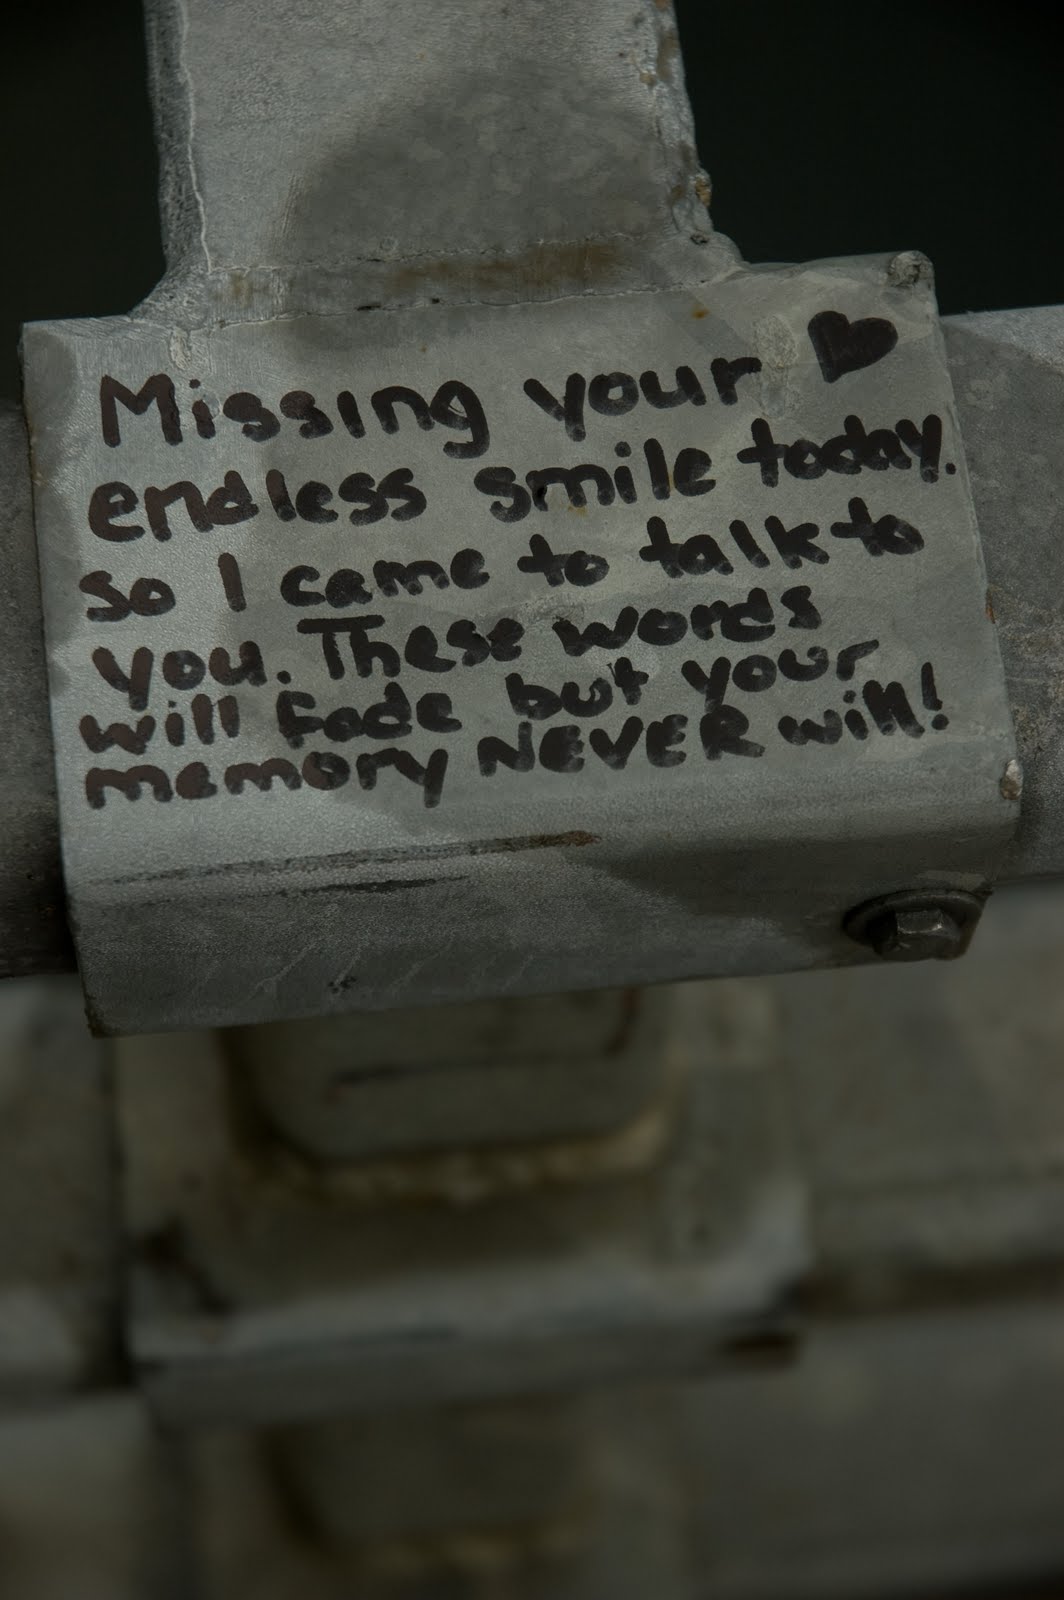 Missing your ♥
endless smile today.
so I came to talk to
you. These words
will fade but your
memory NEVER will!